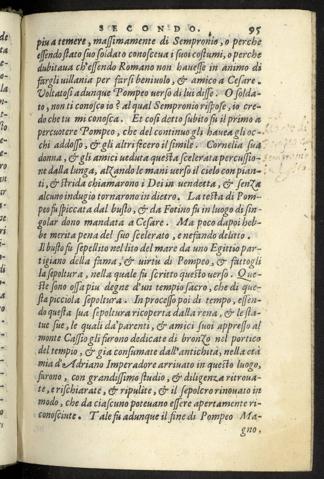 SECONDO. 95
piu a temere, massimamente di Sempronio, o perche
essendo stato suo soldato conosceua i suoi costumi, o perche
dubitaua ch'essendo Romano non hauesse in animo di
fargli uillania per farsi beniuolo, & amico a Cesare.
Voltatosi adunque Pompeo uerso di lui disse. O solda-
to, non ti conosco io? al qual Sempronio rispose, io cre-
do che tu mi conosca. Et cosi detto subito fu il primo a
percuotere Pompeo, che del continuo gli hauea gli oc-
chi addosso, & gli altri fecero il simile. Cornelia sua
donna, & gli amici ueduta questa scelerata percussio-
ne dalla lunga, alzando le mani uerso il cielo con pian-
ti, & strida chiamarono i Dei in uendetta, & senza
alcuno indugio tornarono in dietro. La testa di Pom-
peo fu spiccata dal busto, & da Fotino fu in luogo di sin-
golar dono mandata a Cesare. Ma poco dapoi heb-
be merita pena del suo scelerato, e nefando delitto.
Il busto fu sepellito nel lito del mare da uno Egittio par-
tigiano della fama, & uirtu di Pompeo, & fattogli
la sepoltura, nella quale fu scritto questo uerso. Que-
ste sono ossa piu degne d'un tempio sacro, che di que-
sta picciola sepoltura. In processo poi di tempo, essen-
do questa sua sepoltura ricoperta dalla rena, & le sta-
tue sue, le quali da' parenti, & amici suoi appresso al
monte Cassio gli furono dedicate di bronzo nel portico
del tempio, & gia consumate dall'antichità, nella età
mia d'Adriano Imperadore arriuato in questo luogo,
furono, con grandissimo studio, & diligenza ritroua-
te, e rischiarate, & ripulite, & il sepolcro rinouato in
modo, che da ciascuno poteuano essere apertamente ri-
conosciute. Tale fu adunque il fine di Pompeo Ma-
gno,